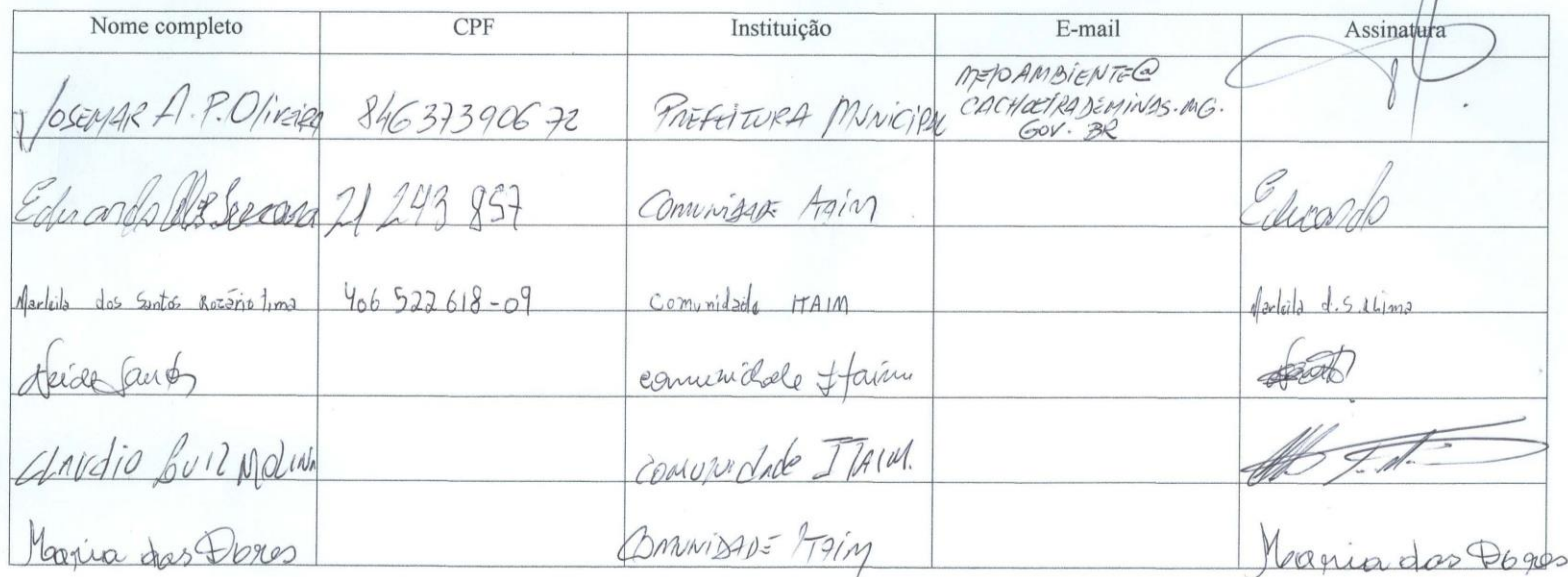 Nome completo CPF Instituição E-mail Assinatura
JOSEMAR A. P. Oliveira 84637390672 PREFEITURA MUNICIPAL MEIOAMBIENTE@
CACHOEIRADEMINAS.MG.
GOV.BR
Eduardo 21 243 857 COMUNIDADE ITAIM Eduardo
Marleila dos Santos Rozário Lima 406 522 618-09 Comunidade ITAIM Marleila d.S.R.Lima
Neide Santos comunidade Itaim
Claudio Luiz MOLINA COMUNIDADE ITAIM.
Maria das Dores COMUNIDADE ITAIM Maria das Dores